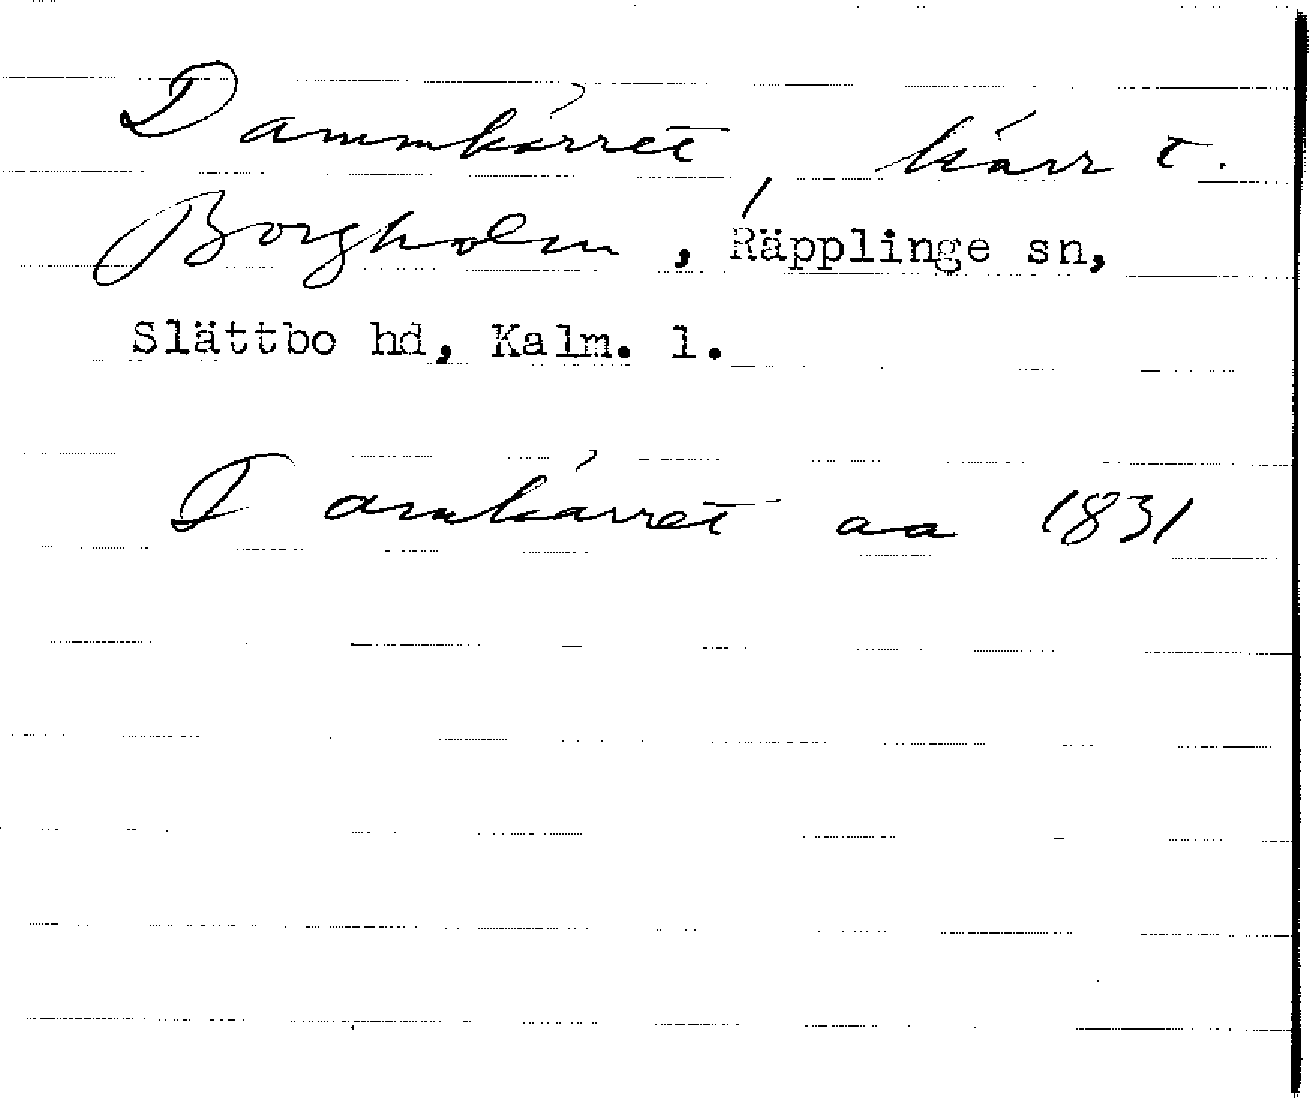 Dammkärret, kärr t.
Borgholm, Räpplinge sn,
Slättbo hd, Kalm. l.
Damkärret aa 1831